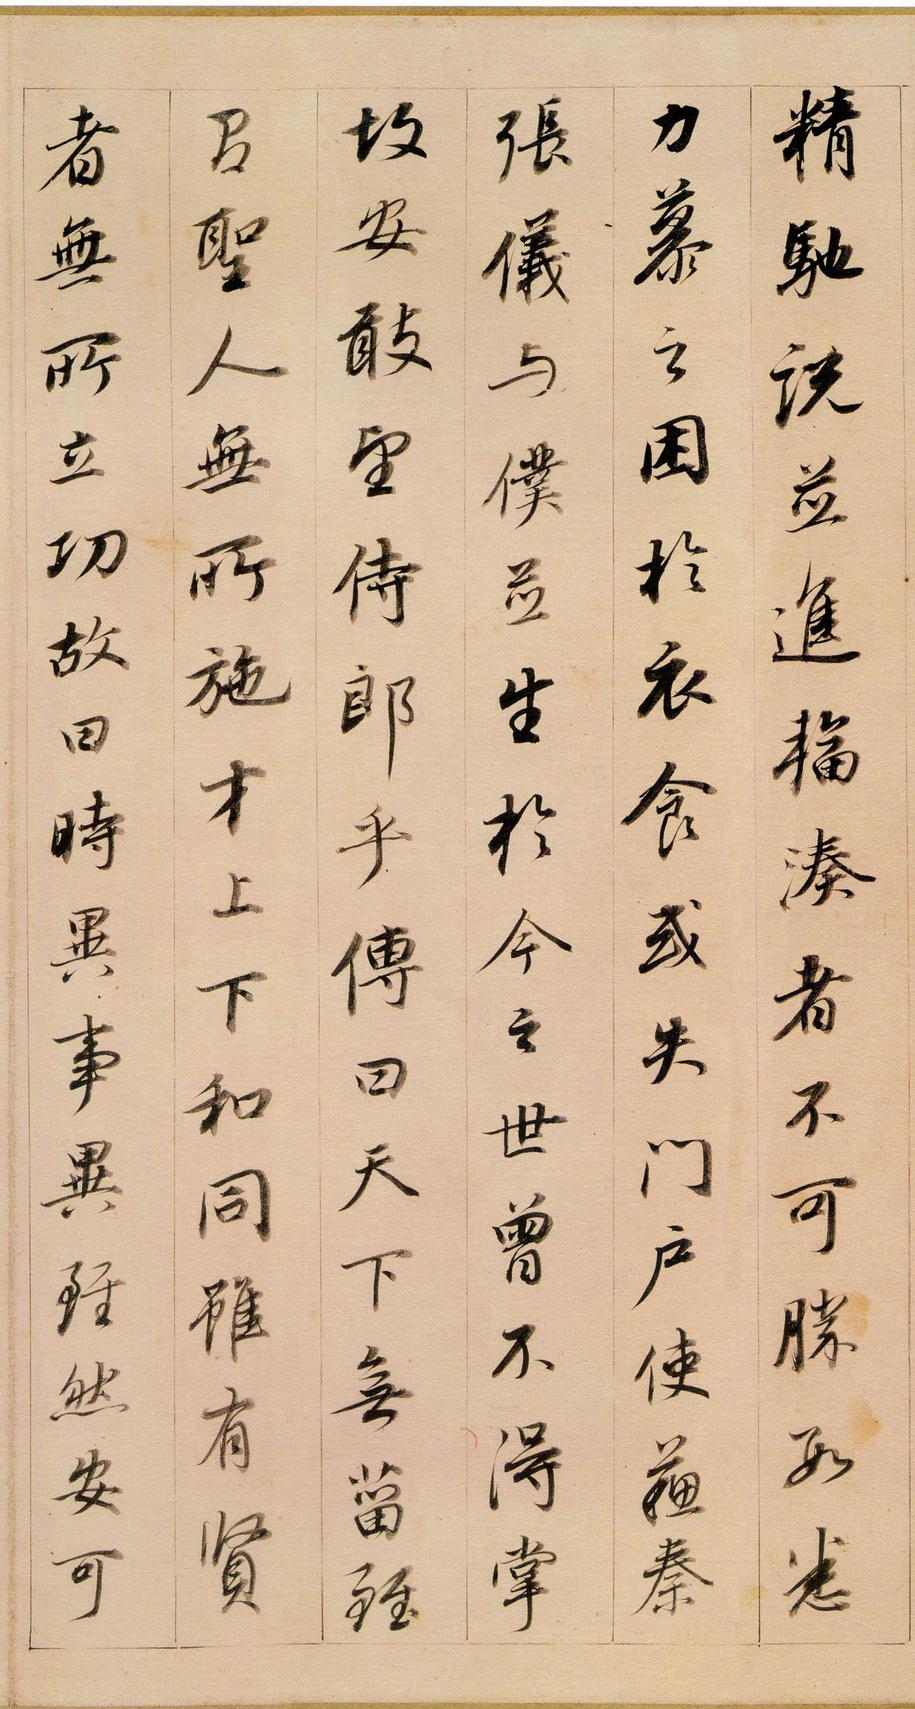 精馳說並進輻湊者不可勝數悉
力慕之困於衣食或失門戶使蘇秦
張儀與僕並生於今之世曾不得掌
故安敢望侍郎乎傳曰天下無菑雖
有聖人無所施才上下和同雖有賢
者無所立功故曰時異事異雖然安可